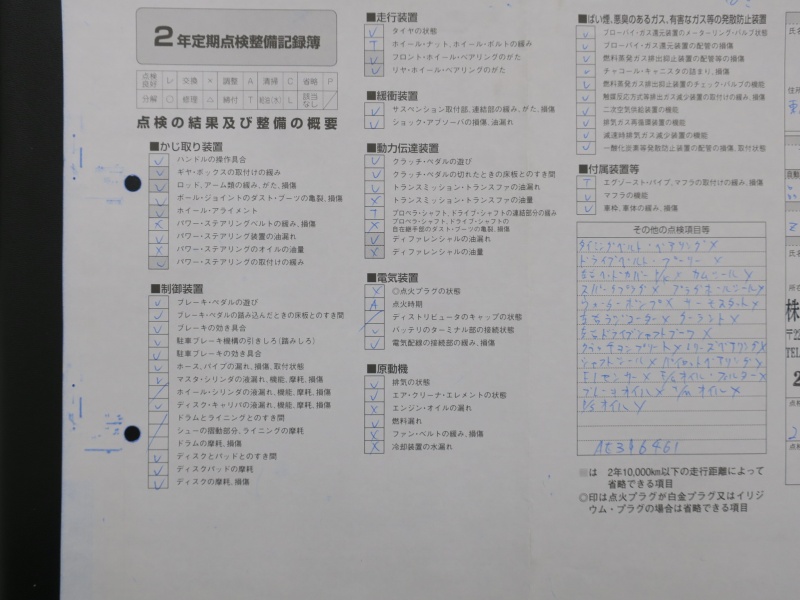 2年定期点検整備記録簿
点検良好 レ 交換 × 調整 A 清掃 C 省略 P
分解 ○ 修理 △ 締付 T 給油(水) L 該当なし ／
点検の結果及び整備の概要
■かじ取り装置
レ ハンドルの操作具合
レ ギヤ・ボックスの取付けの緩み
レ ロッド、アーム類の緩み、がた、損傷
レ ボール・ジョイントのダスト・ブーツの亀裂、損傷
レ ホイール・アライメント
× パワー・ステアリングベルトの緩み、損傷
レ パワー・ステアリング装置の油漏れ
× パワー・ステアリングのオイルの油量
レ パワー・ステアリングの取付けの緩み
■制御装置
レ ブレーキ・ペダルの遊び
レ ブレーキ・ペダルの踏み込んだときの床板とのすき間
レ ブレーキの効き具合
レ 駐車ブレーキ機構の引きしろ(踏みしろ)
レ 駐車ブレーキの効き具合
レ ホース、パイプの漏れ、損傷、取付状態
レ マスタ・シリンダの液漏れ、機能、摩耗、損傷
／ ホイール・シリンダの液漏れ、機能、摩耗、損傷
レ ディスク・キャリパの液漏れ、機能、摩耗、損傷
／ ドラムとライニングとのすき間
／ シューの摺動部分、ライニングの摩耗
／ ドラムの摩耗、損傷
レ ディスクとパッドとのすき間
レ ディスクパッドの摩耗
レ ディスクの摩耗、損傷
■走行装置
レ タイヤの状態
T ホイール・ナット、ホイール・ボルトの緩み
レ フロント・ホイール・ベアリングのがた
レ リヤ・ホイール・ベアリングのがた
■緩衝装置
レ サスペンション取付部、連結部の緩み、がた、損傷
レ ショック・アブソーバの損傷、油漏れ
■動力伝達装置
レ クラッチ・ペダルの遊び
レ クラッチ・ペダルの切れたときの床板とのすき間
レ トランスミッション・トランスファの油漏れ
× トランスミッション・トランスファの油量
T プロペラ・シャフト、ドライブ・シャフトの連結部分の緩み
プロペラ・シャフト、ドライブ・シャフトの
自在継手部のダスト・ブーツの亀裂、損傷
レ ディファレンシャルの油漏れ
× ディファレンシャルの油量
■電気装置
× ◎点火プラグの状態
A 点火時期
／ ディストリビュータのキャップの状態
レ バッテリのターミナル部の接続状態
レ 電気配線の接続部の緩み、損傷
■原動機
レ 排気の状態
レ エア・クリーナ・エレメントの状態
× エンジン・オイルの漏れ
レ 燃料漏れ
× ファン・ベルトの緩み、損傷
× 冷却装置の水漏れ
■ばい煙、悪臭のあるガス、有害なガス等の発散防止装置
レ ブローバイ・ガス還元装置のメーターリング・バルブ状態
レ ブローバイ・ガス還元装置の配管の損傷
レ 燃料蒸発ガス排出抑止装置の配管等の損傷
レ チャコール・キャニスタの詰まり、損傷
レ 燃料蒸発ガス排出抑止装置のチェック・バルブの機能
レ 触媒反応方式等排出ガス減少装置の取付けの緩み、損傷
レ 二次空気供給装置の機能
レ 排気ガス再循環装置の機能
レ 減速時排気ガス減少装置の機能
レ 一酸化炭素等発散防止装置の配管の損傷、取付状態
■付属装置等
T エグゾースト・パイプ、マフラの取付けの緩み、損傷
レ マフラの機能
レ 車枠、車体の緩み、損傷
その他の点検項目等
タイミングベルト・ベアリング×
ドライブベルト・プーリー ×
カムシール
スパークプラグ× プラグホールシール
ウォーターポンプ× サーモスタット×
左右ラジエーター クーラント×
左右ドライブシャフトブーツ ×
シャフトシール× パイロットベアリング
オイル・フィルター×
ブレーキオイル× オイル×
オイル
AE346461
■は 2年10,000km以下の走行距離によって
省略できる項目
◎印は点火プラグが白金プラグ又はイリジ
ウム・プラグの場合は省略できる項目